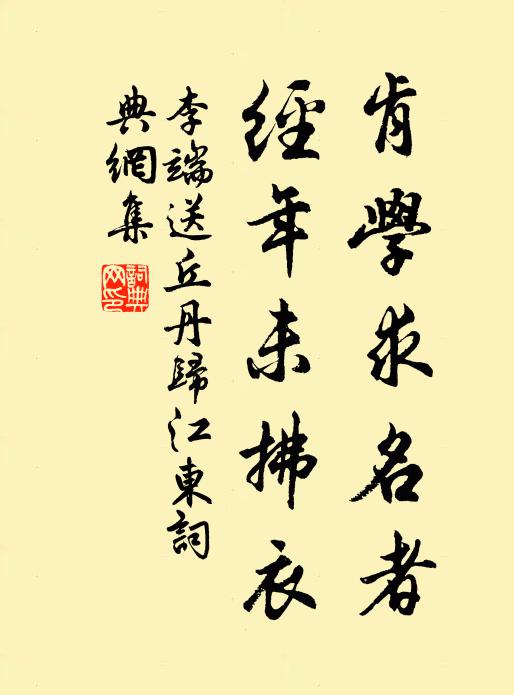 肯學求名者
經年未拂衣
李端送丘丹歸江東詞
典網集
詞典
网印